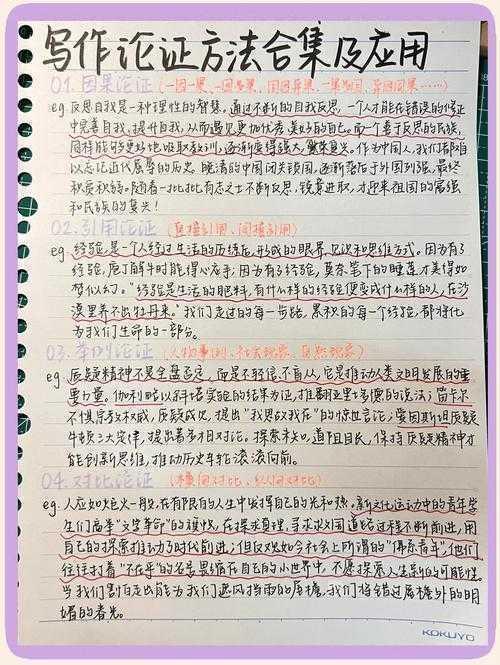 写作论证方法合集及应用
01.因果论证(一因一果、一因多果、同因异果、一果多因、异因同果……)
eg.反思自我是一种理性的智慧。通过不断的自我反思,一个人才能在错误的修正
中完善自我、提升自我,从而遇见更加优秀、美好的自己。而一个善于反思的民族,
同样能够更好地吸取教训,逐渐变得强大、繁荣复兴。作为中国人,我们都难
以忘记近代屈辱的历史。晚清的中国闭关锁国,逐渐落后于外国列强,最终
积贫积弱。随着一批批有志之士不断反思,锐意进取,才迎来祖国的富强
和民族的复兴!
02.引用论证(直接引用、间接引用)
eg.经验,是一个人经过生活的历练后,形成的眼界、见识和思维方式。因为有了
经验,庖丁解牛时能得心应手;因为有了经验,莫奈笔下的睡莲才美得如
梦似幻。"经验是生活的肥料,有什么样的经验便变成什么样的人,在沙
漠里养不出牡丹来。"我们走过的每一步路,累积的每一个经验,都将化
为我们生命的一部分。
03.举例论证(人物事例、社会现象、自然现象)
eg.质疑精神不是全盘否定,而是不轻信、不盲从,它是推动人类文明发展的重
要力量。伽利略以斜塔实验的结果为证,推翻亚里士多德的说法;笛卡尔
不惧宗教权威,质疑成见,提出"我思故我在"的惊世言论;爱因斯坦质疑
牛顿三大定律,提出著名相对论。探索未知,道阻且长,保持质疑精神才
能创新思维,推动历史车轮滚滚向前。
04.对比论证(横向对比、纵向对比)
eg.人应如炬火一般,在有限的人生中发挥自己的光和热。新文化运动中的青年学
生们高举"文学革命"的旗帜,在探求真理、寻求求国道路过程不断前进,用
自己的探索推动了时代前进;但反观如今社会上所谓的"佛系青年",他们
往往打着"不在乎"的名号畏缩在自己的小世界中,不愿探索人生新的可能性。
当我们害怕走出能为我们遮风挡雨的屋檐,我们将错过屋檐外的明
媚的春光。
KOKUYO